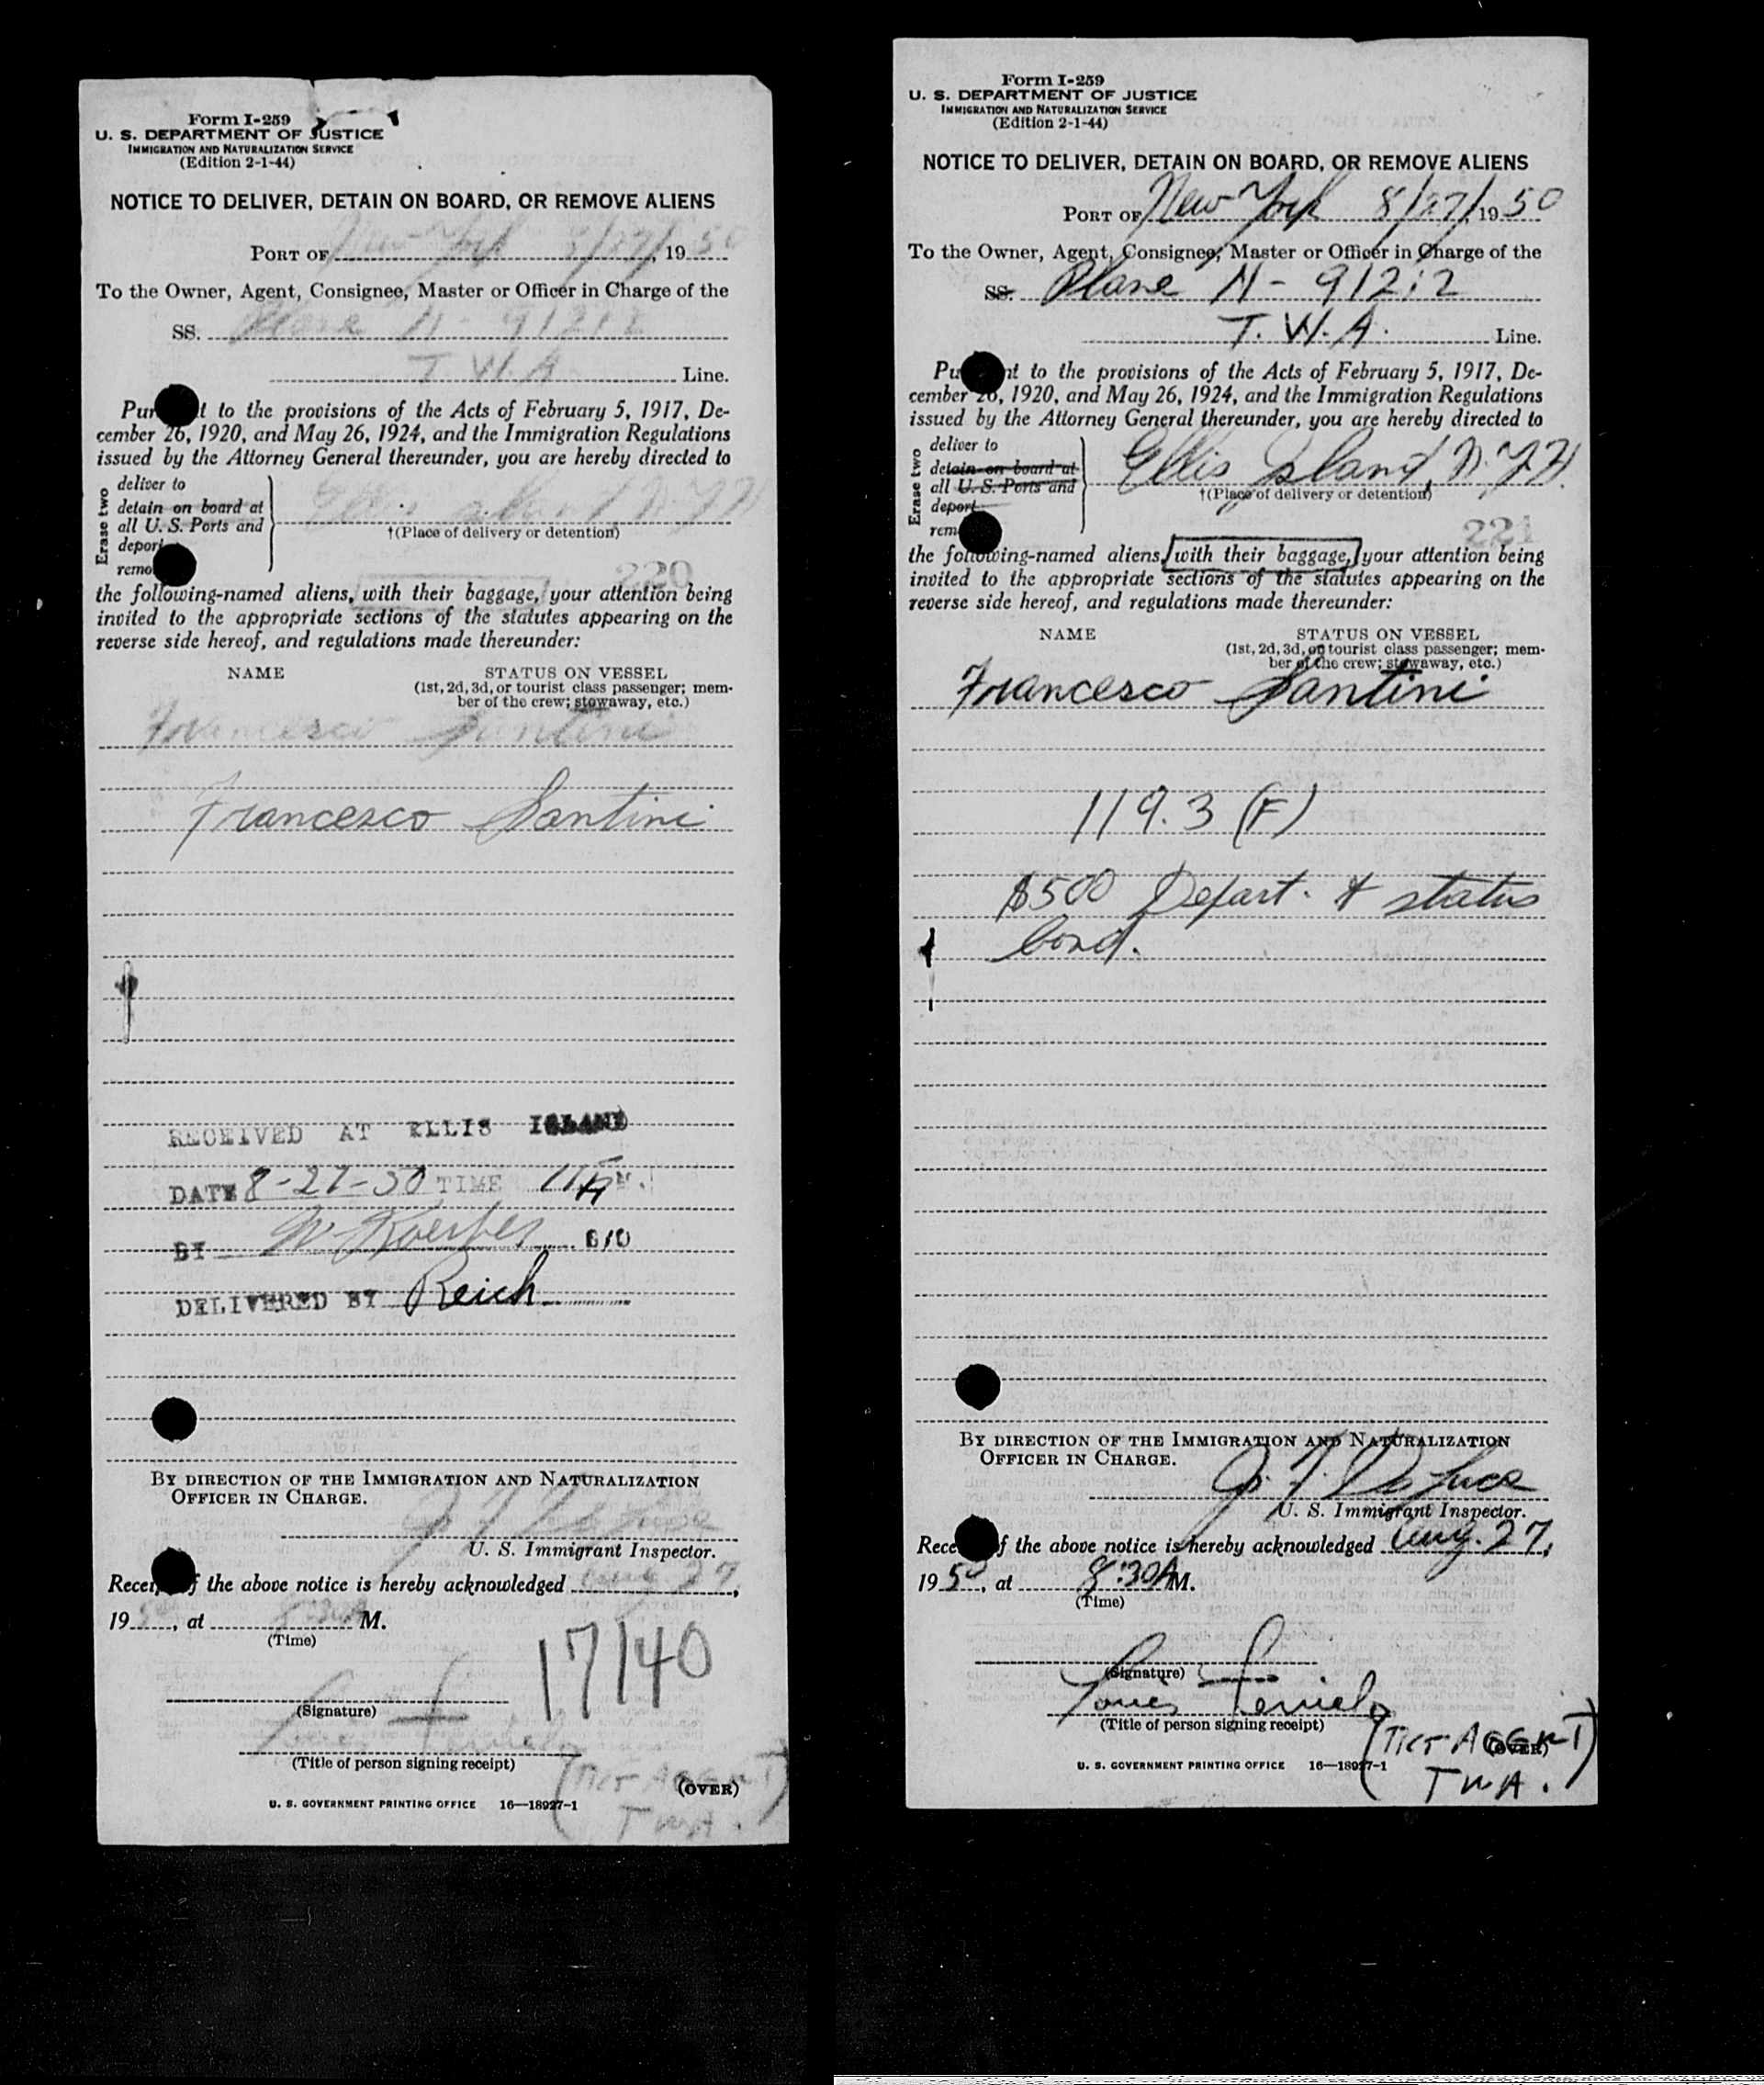 Form I-259
U. S. DEPARTMENT OF JUSTICE
IMMIGRATION AND NATURALIZATION SERVICE
(Edition 2-1-44)
NOTICE TO DELIVER, DETAIN ON BOARD, OR REMOVE ALIENS
PORT OF New York 8/27/, 19 50
To the Owner, Agent, Consignee, Master or Officer in Charge of the
SS. Plane N- 91212
T W A Line.
to the provisions of the Acts of February 5, 1917, De-
cember 26, 1920, and May 26, 1924, and the Immigration Regulations
issued by the Attorney General thereunder, you are hereby directed to
Erase two
deliver to
detain on board at
all U. S. Ports and
deport
remo
Ellis Island, N.Y.H.
†(Place of delivery or detention)
220
the following-named aliens, with their baggage, your attention being
invited to the appropriate sections of the statutes appearing on the
reverse side hereof, and regulations made thereunder:
NAME STATUS ON VESSEL
(1st, 2d, 3d, or tourist class passenger; mem-
ber of the crew; stowaway, etc.)
Francesco Santini
Francesco Santini
RECEIVED AT ELLIS ISLAND
DATE 8-27-50 TIME
BY W. Koerber
DELIVERED BY Reich
BY DIRECTION OF THE IMMIGRATION AND NATURALIZATION
OFFICER IN CHARGE.
U. S. Immigrant Inspector.
of the above notice is hereby acknowledged Aug. 27,
19 50, at 8:30A M.
(Time)
17140
(Signature)
Louis
(Title of person signing receipt)
(TKT AGENT
TWA.
(OVER)
U. S. GOVERNMENT PRINTING OFFICE 16—18927-1
Form I-259
U. S. DEPARTMENT OF JUSTICE
IMMIGRATION AND NATURALIZATION SERVICE
(Edition 2-1-44)
NOTICE TO DELIVER, DETAIN ON BOARD, OR REMOVE ALIENS
PORT OF New York 8/27/, 19 50
To the Owner, Agent, Consignee, Master or Officer in Charge of the
SS. Plane N- 91212
T. W. A. Line.
to the provisions of the Acts of February 5, 1917, De-
cember 26, 1920, and May 26, 1924, and the Immigration Regulations
issued by the Attorney General thereunder, you are hereby directed to
Erase two
deliver to
detain on board at
all U. S. Ports and
deport
rem
Ellis Island, N.Y.H.
†(Place of delivery or detention)
221
the following-named aliens, with their baggage, your attention being
invited to the appropriate sections of the statutes appearing on the
reverse side hereof, and regulations made thereunder:
NAME STATUS ON VESSEL
(1st, 2d, 3d, or tourist class passenger; mem-
ber of the crew; stowaway, etc.)
Francesco Santini
119.3 (F)
$500 Depart. & status
bond.
BY DIRECTION OF THE IMMIGRATION AND NATURALIZATION
OFFICER IN CHARGE.
U. S. Immigrant Inspector.
of the above notice is hereby acknowledged Aug. 27,
19 50, at 8:30A M.
(Time)
(Signature)
Louis
(Title of person signing receipt)
(TKT AGENT)
TWA.
(OVER)
U. S. GOVERNMENT PRINTING OFFICE 16—18927-1